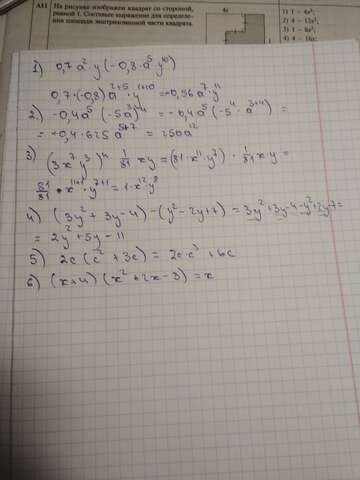 А11 На рисунке изображен квадрат со стороной,
равной 1. Составьте выражение для определе-
ния площади заштрихованной части квадрата.
4x
1) 1 − 4x²;
2) 4 − 12x²;
3) 1 − 8x²;
4) 4 − 16x
1) 0,7a² y (−0,8·a⁵ y¹⁰)
0,7·(−0,8) a²⁺⁵·y¹⁺¹⁰ = −0,56a⁷ y¹¹
2) −0,4a⁵ (−5a³)⁴ = −0,4a⁵(−5⁴·a³⁺⁴) =
= −0,4·625a⁵⁺⁷ = 250a¹²
3) (3x⁷ y³)⁴ 1/81 xy = (81·x¹¹ y⁷)·1/81 xy =
81/81 · x¹¹⁺¹ y⁷⁺¹ = 1·x¹² y⁸
4) (3y² + 3y − 4) − (y² − 2y + 7) = 3y² + 3y − 4 − y² + 2y − 7 =
= 2y² + 5y − 11
5) 2c (c² + 3c) = 2c·c³ + 6c
6) (x + 4) (x² + 2x − 3) = x